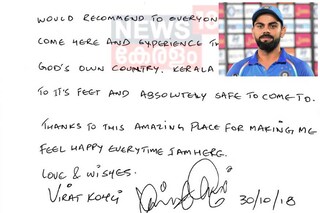 WOULD RECOMMEND TO EVERYON
COME HERE AND EXPERIENCE TH
GOD'S OWN COUNTRY. KERALA
TO IT'S FEET AND ABSOLUTELY SAFE TO COME TO.
THANKS TO THIS AMAZING PLACE FOR MAKING ME
FEEL HAPPY EVERYTIME I AM HERE.
LOVE & WISHES.
VIRAT KOHLI 30/10/18
NEWS 18
കേരളം